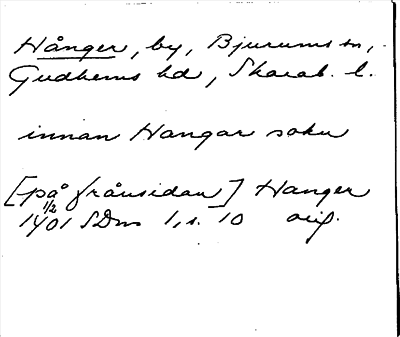 Hånger, by, Bjurums sn,
Gudhems hd, Skarab. l.
innan Hangar sokn
[på frånsidan] Hanger
1/2 1401 SDns 1, s. 10 orig.